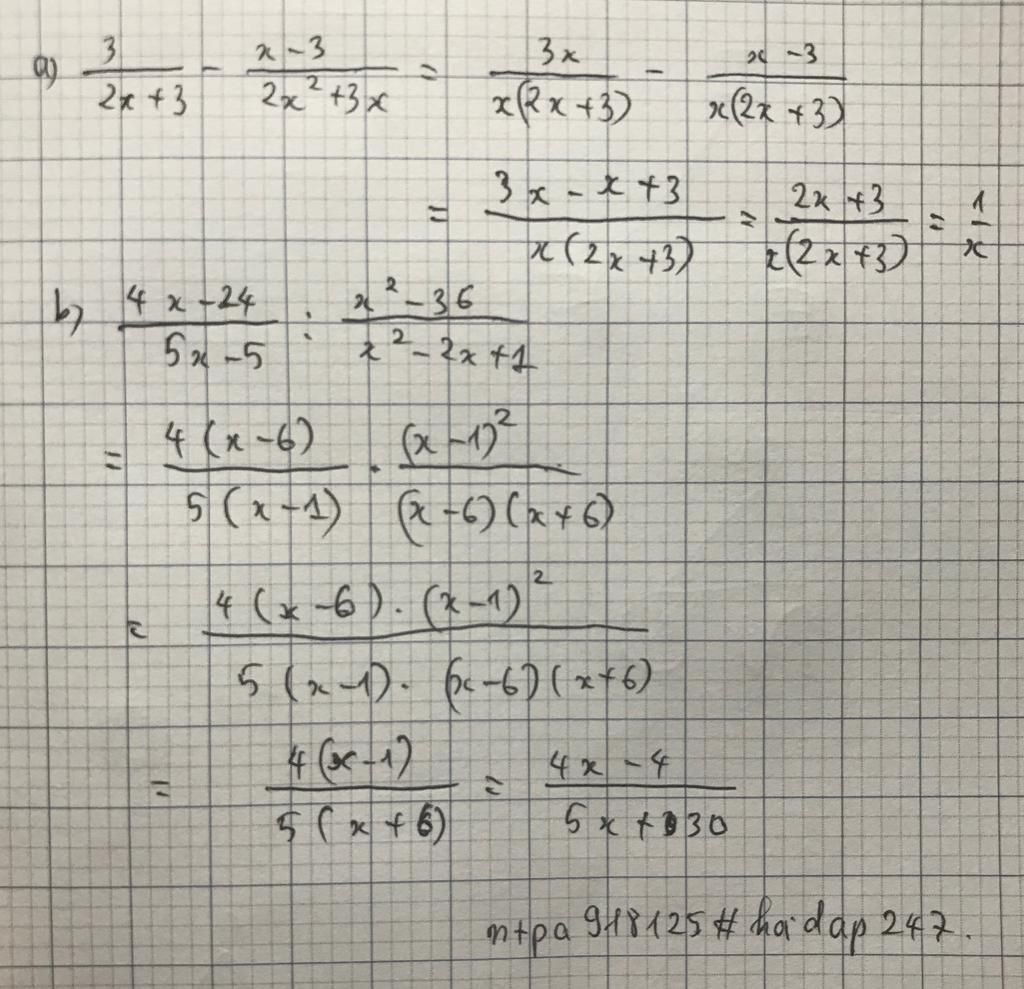 a) 3/(2x+3) - (x-3)/(2x²+3x) = 3x/(x(2x+3)) - (x-3)/(x(2x+3))
= (3x-x+3)/(x(2x+3)) = (2x+3)/(x(2x+3)) = 1/x
b) (4x-24)/(5x-5) : (x²-36)/(x²-2x+1)
= 4(x-6)/(5(x-1)) . (x-1)²/((x-6)(x+6))
= (4(x-6).(x-1)²)/(5(x-1).(x-6)(x+6))
= 4(x-1)/(5(x+6)) = (4x-4)/(5x+30)
ntpa 918125 # hoidap 247.